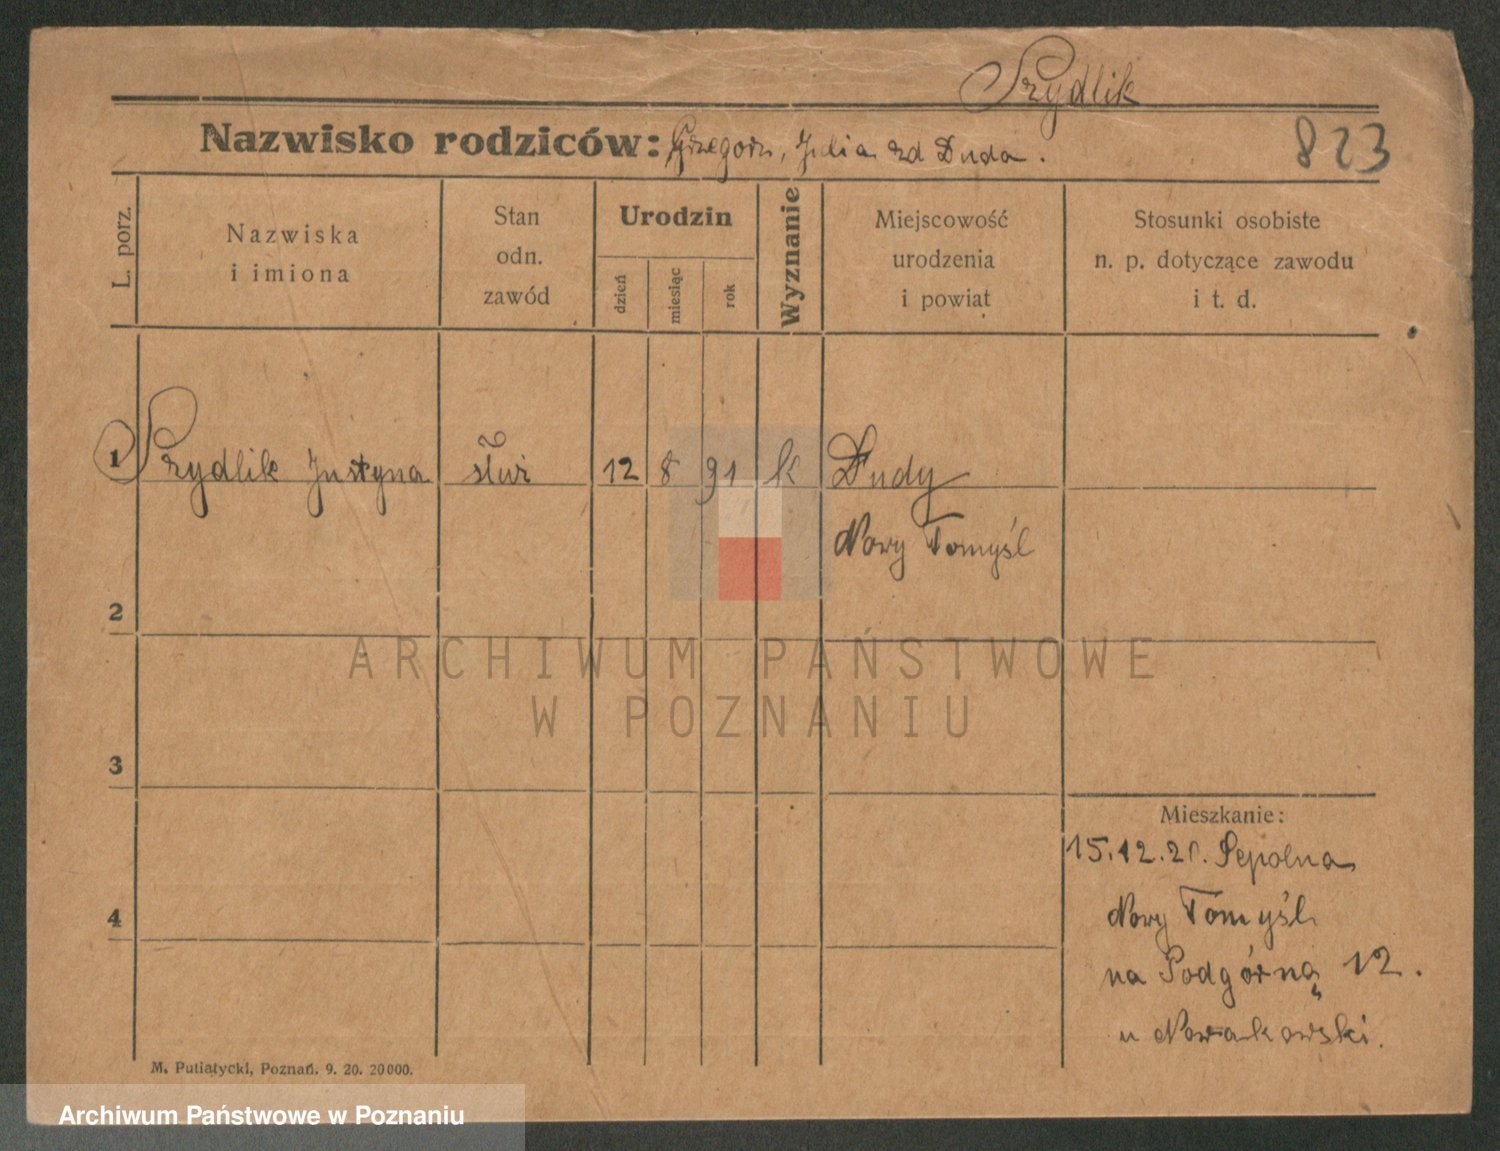 Szydlik
Nazwisko rodziców: Grzegorz, Julia zd Duda.
823
L. porz.
Nazwiska
i imiona
Stan
odn.
zawód
Urodzin
dzień
miesiąc
rok
Wyznanie
Miejscowość
urodzenia
i powiat
Stosunki osobiste
n. p. dotyczące zawodu
i t. d.
1 Szydlik Justyna służ 12 8 91 k Dudy
Nowy Tomyśl
2
3
4
Mieszkanie:
15.12.21. Sępolna
Nowy Tomyśl
na Podgórną 12.
u Nowakowski.
M. Putiatycki, Poznań. 9. 20. 20000.
ARCHIWUM PAŃSTWOWE
W POZNANIU
Archiwum Państwowe w Poznaniu